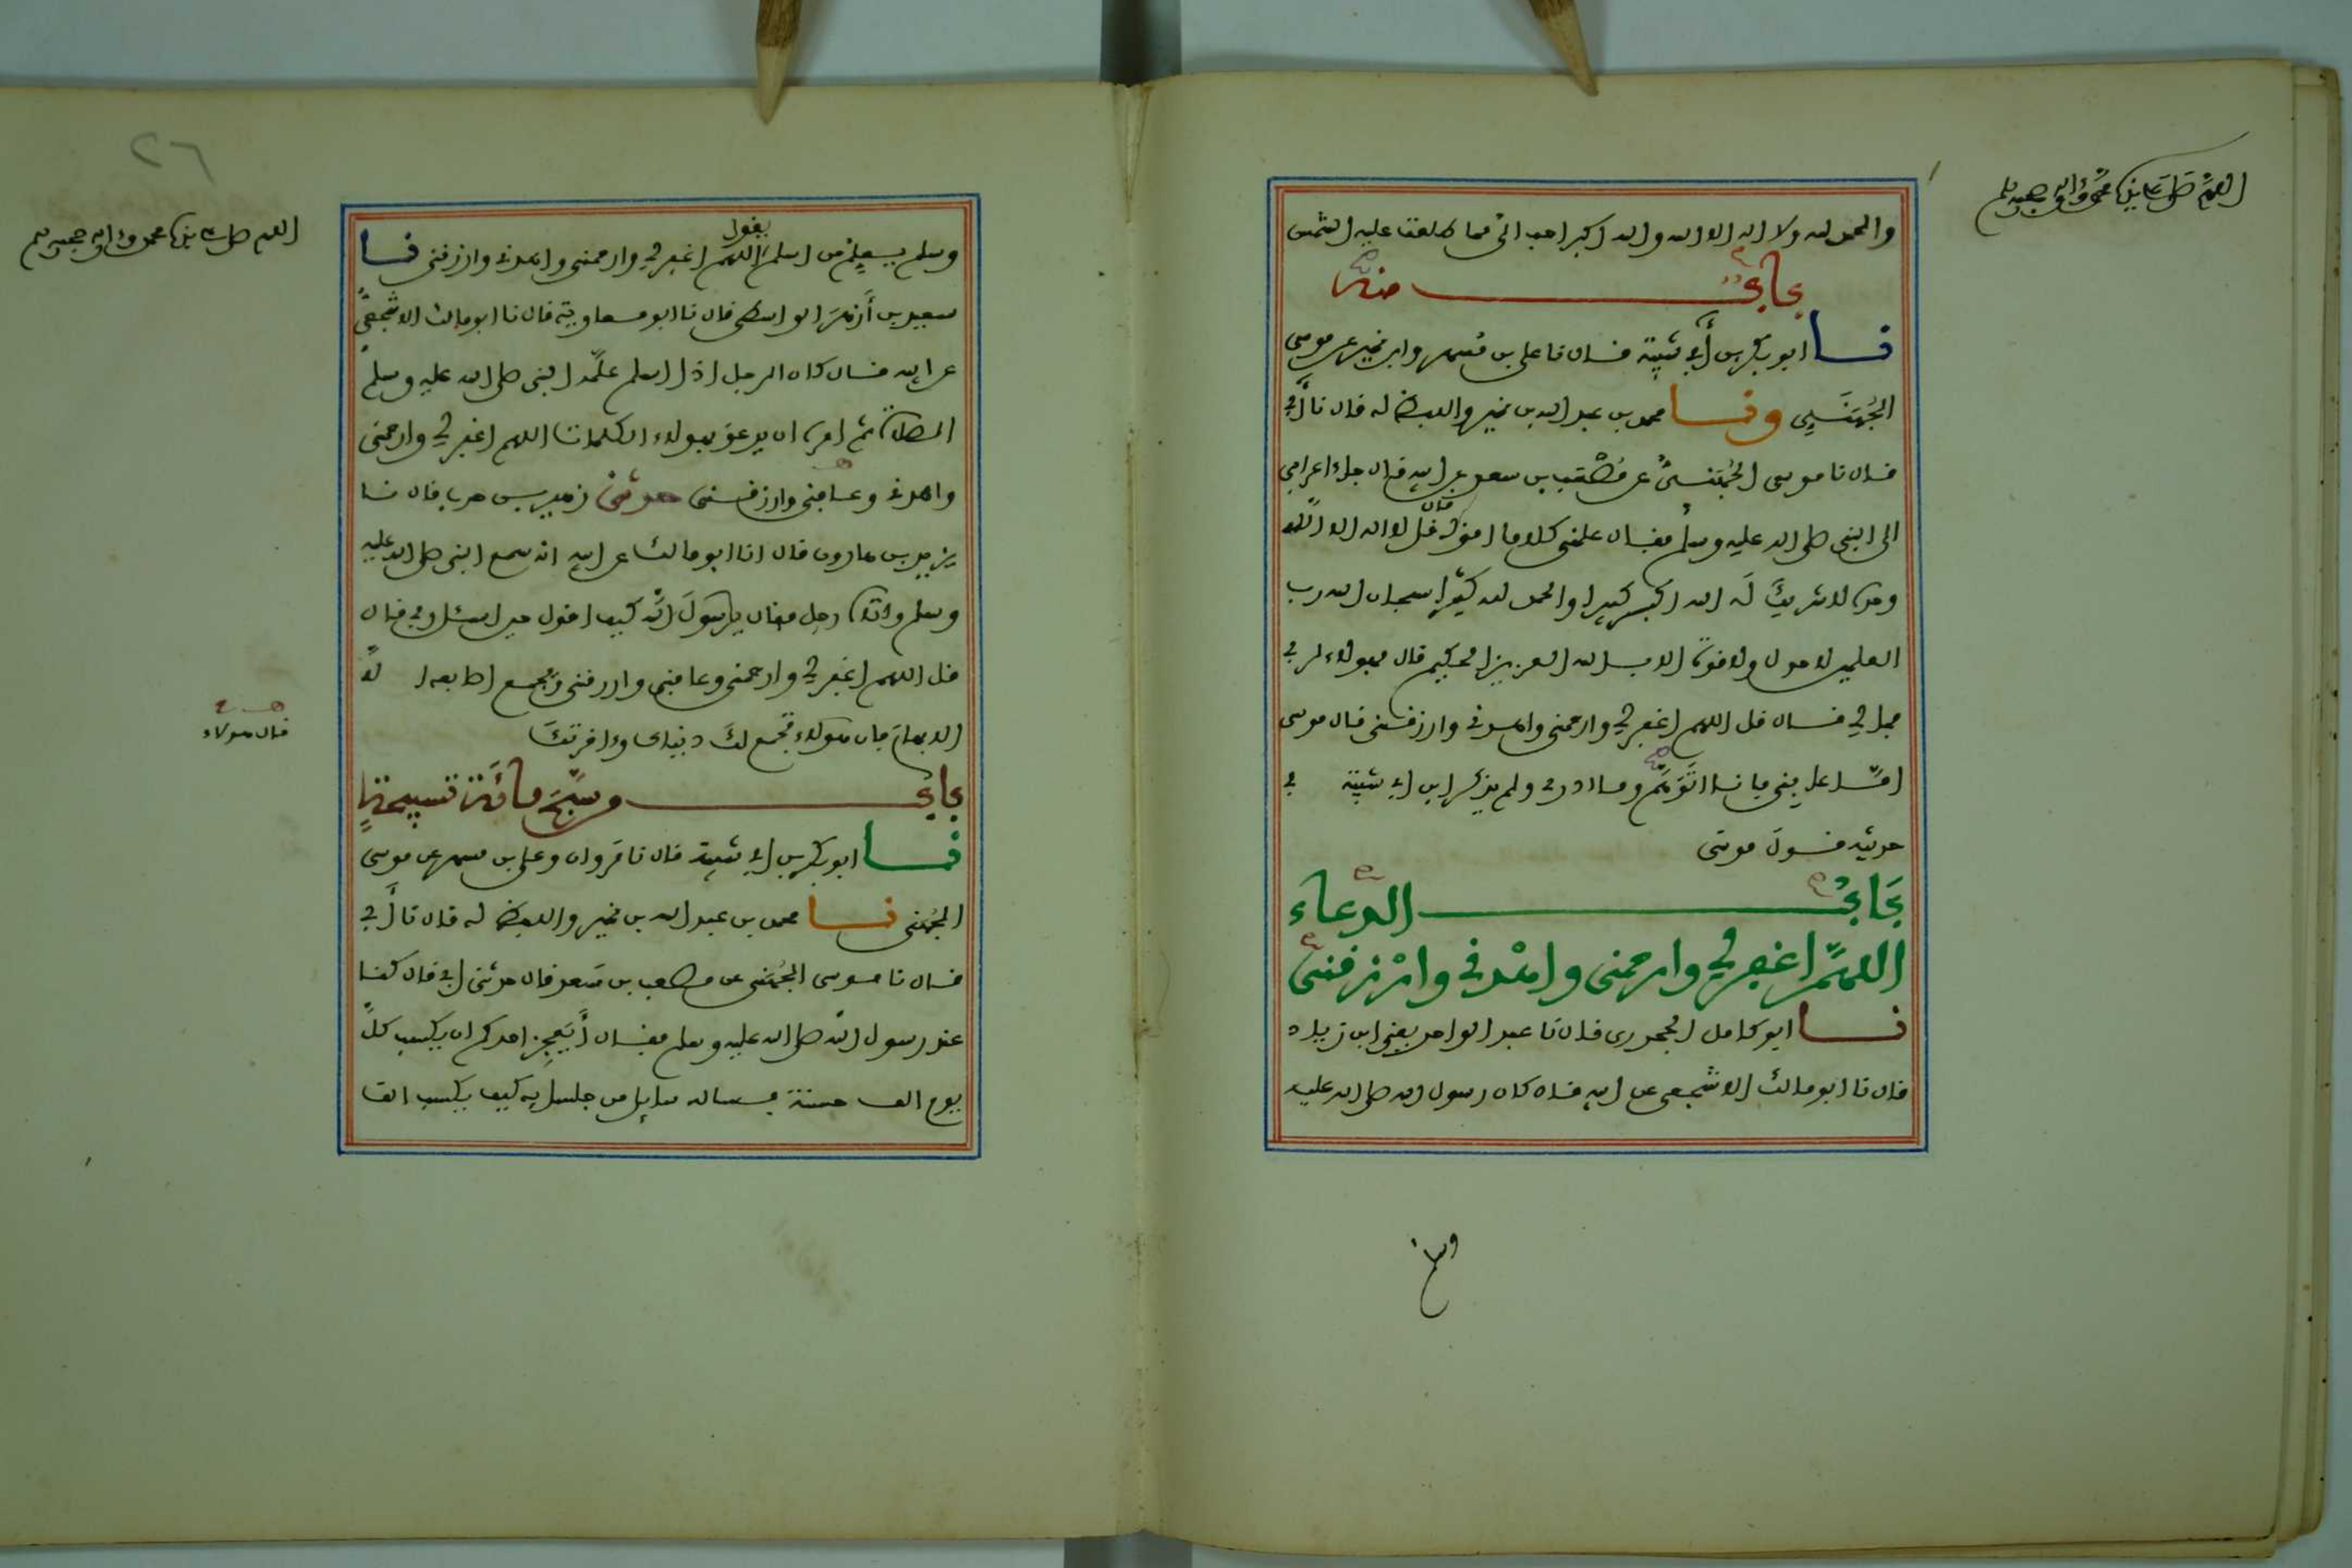 اللهم صل على سيدنا محمد وءاله وصحبه وسلم
والحمد لله ولا اله الا الله والله اكبر احب الي مما طلعت عليه الشمس
بابٌ منه
نا ابو بكر بن أبي شيبة قال نا علي بن مسهر وابن نمير عن موسى
الجُهَنيي ونا محمد بن عبد الله بن نمير واللفظ له قال نا أبي
قال نا موسى الجُهَنيُّ عن مُصْعَب بن سعد عن ابيه قال جاء اعرابي
الى النبي صلى الله عليه وسلم فقال علمني كلاما اقوله قال قل لا اله الا الله
وحده لا شريكَ لَه الله اكبر كبيرا والحمد لله كثيرا سبحان الله رب
العلمين لا حول ولا قوة الا بالله العزيز الحكيم قال فهولاء لربي
فما لي قال قل اللهم اغفر لي وارحمني واهدني وارزقني قال موسى
امَّا عافني فانا اتَوَهَّم وما ادري ولم يذكر ابن ابي شيبة في
حديثه قولَ موسى
بَابُ الدعاء
اللهمَّ اغفر لي وارحمني واهْدني وارْزقني
نا ابو كامل الجحدري قال نا عبد الواحد يعني ابن زياد
قال نا ابو مالك الاشجعي عن ابيه قال كان رسول الله صلى الله عليه
وسلم
٢٦
اللهم صل على سيدنا محمد وءاله وصحبه وسلم
وسلم يعلم من اسلم يقول اللهم اغفر لي وارحمني واهدني وارزقني نا
سعيد بن أزهرَ الواسطي قال نا ابو معاوية قال نا ابو مالك الاشجعيُّ
عن ابيه قال كان الرجل اذا اسلم علَّمه النبي صلى الله عليه وسلم
الصلاة ثم امره ان يدعوَ بهولاء الكلمات اللهم اغفر لي وارحمني
واهدني وعافني وارزقني حدثني زهير بن حرب قال نا
يزيد بن هارون قال انا ابو مالك عن ابيه انه سمع النبي صلى الله عليه
وسلم واتاه رجل فقال يا رسولَ الله كيف اقول حين اسئل ربي قال
قل اللهم اغفر لي وارحمني وعافني وارزقني ويجمع اصابعه الا
الابهامَ فان هولاء تجمع لك دنياك وءاخرتكَ
قال هولاء
بابٌ من سبّحَ مائةَ تسبيحةٍ
نا ابو بكر بن ابي شيبة قال نا مَروان وعلي بن مسهر عن موسى
الجُهَني نا محمد بن عبد الله بن نمير واللفظ له قال نا أبي
قال نا موسى الجُهَني عن مصعب بن سَعد قال حدثني ابي قال كنا
عند رسول الله صلى الله عليه وسلم فقال أيَعجِز احدكم ان يكسب كلَّ
يوم الف حسنة فساله سايل من جلسايه كيف يكسب الف